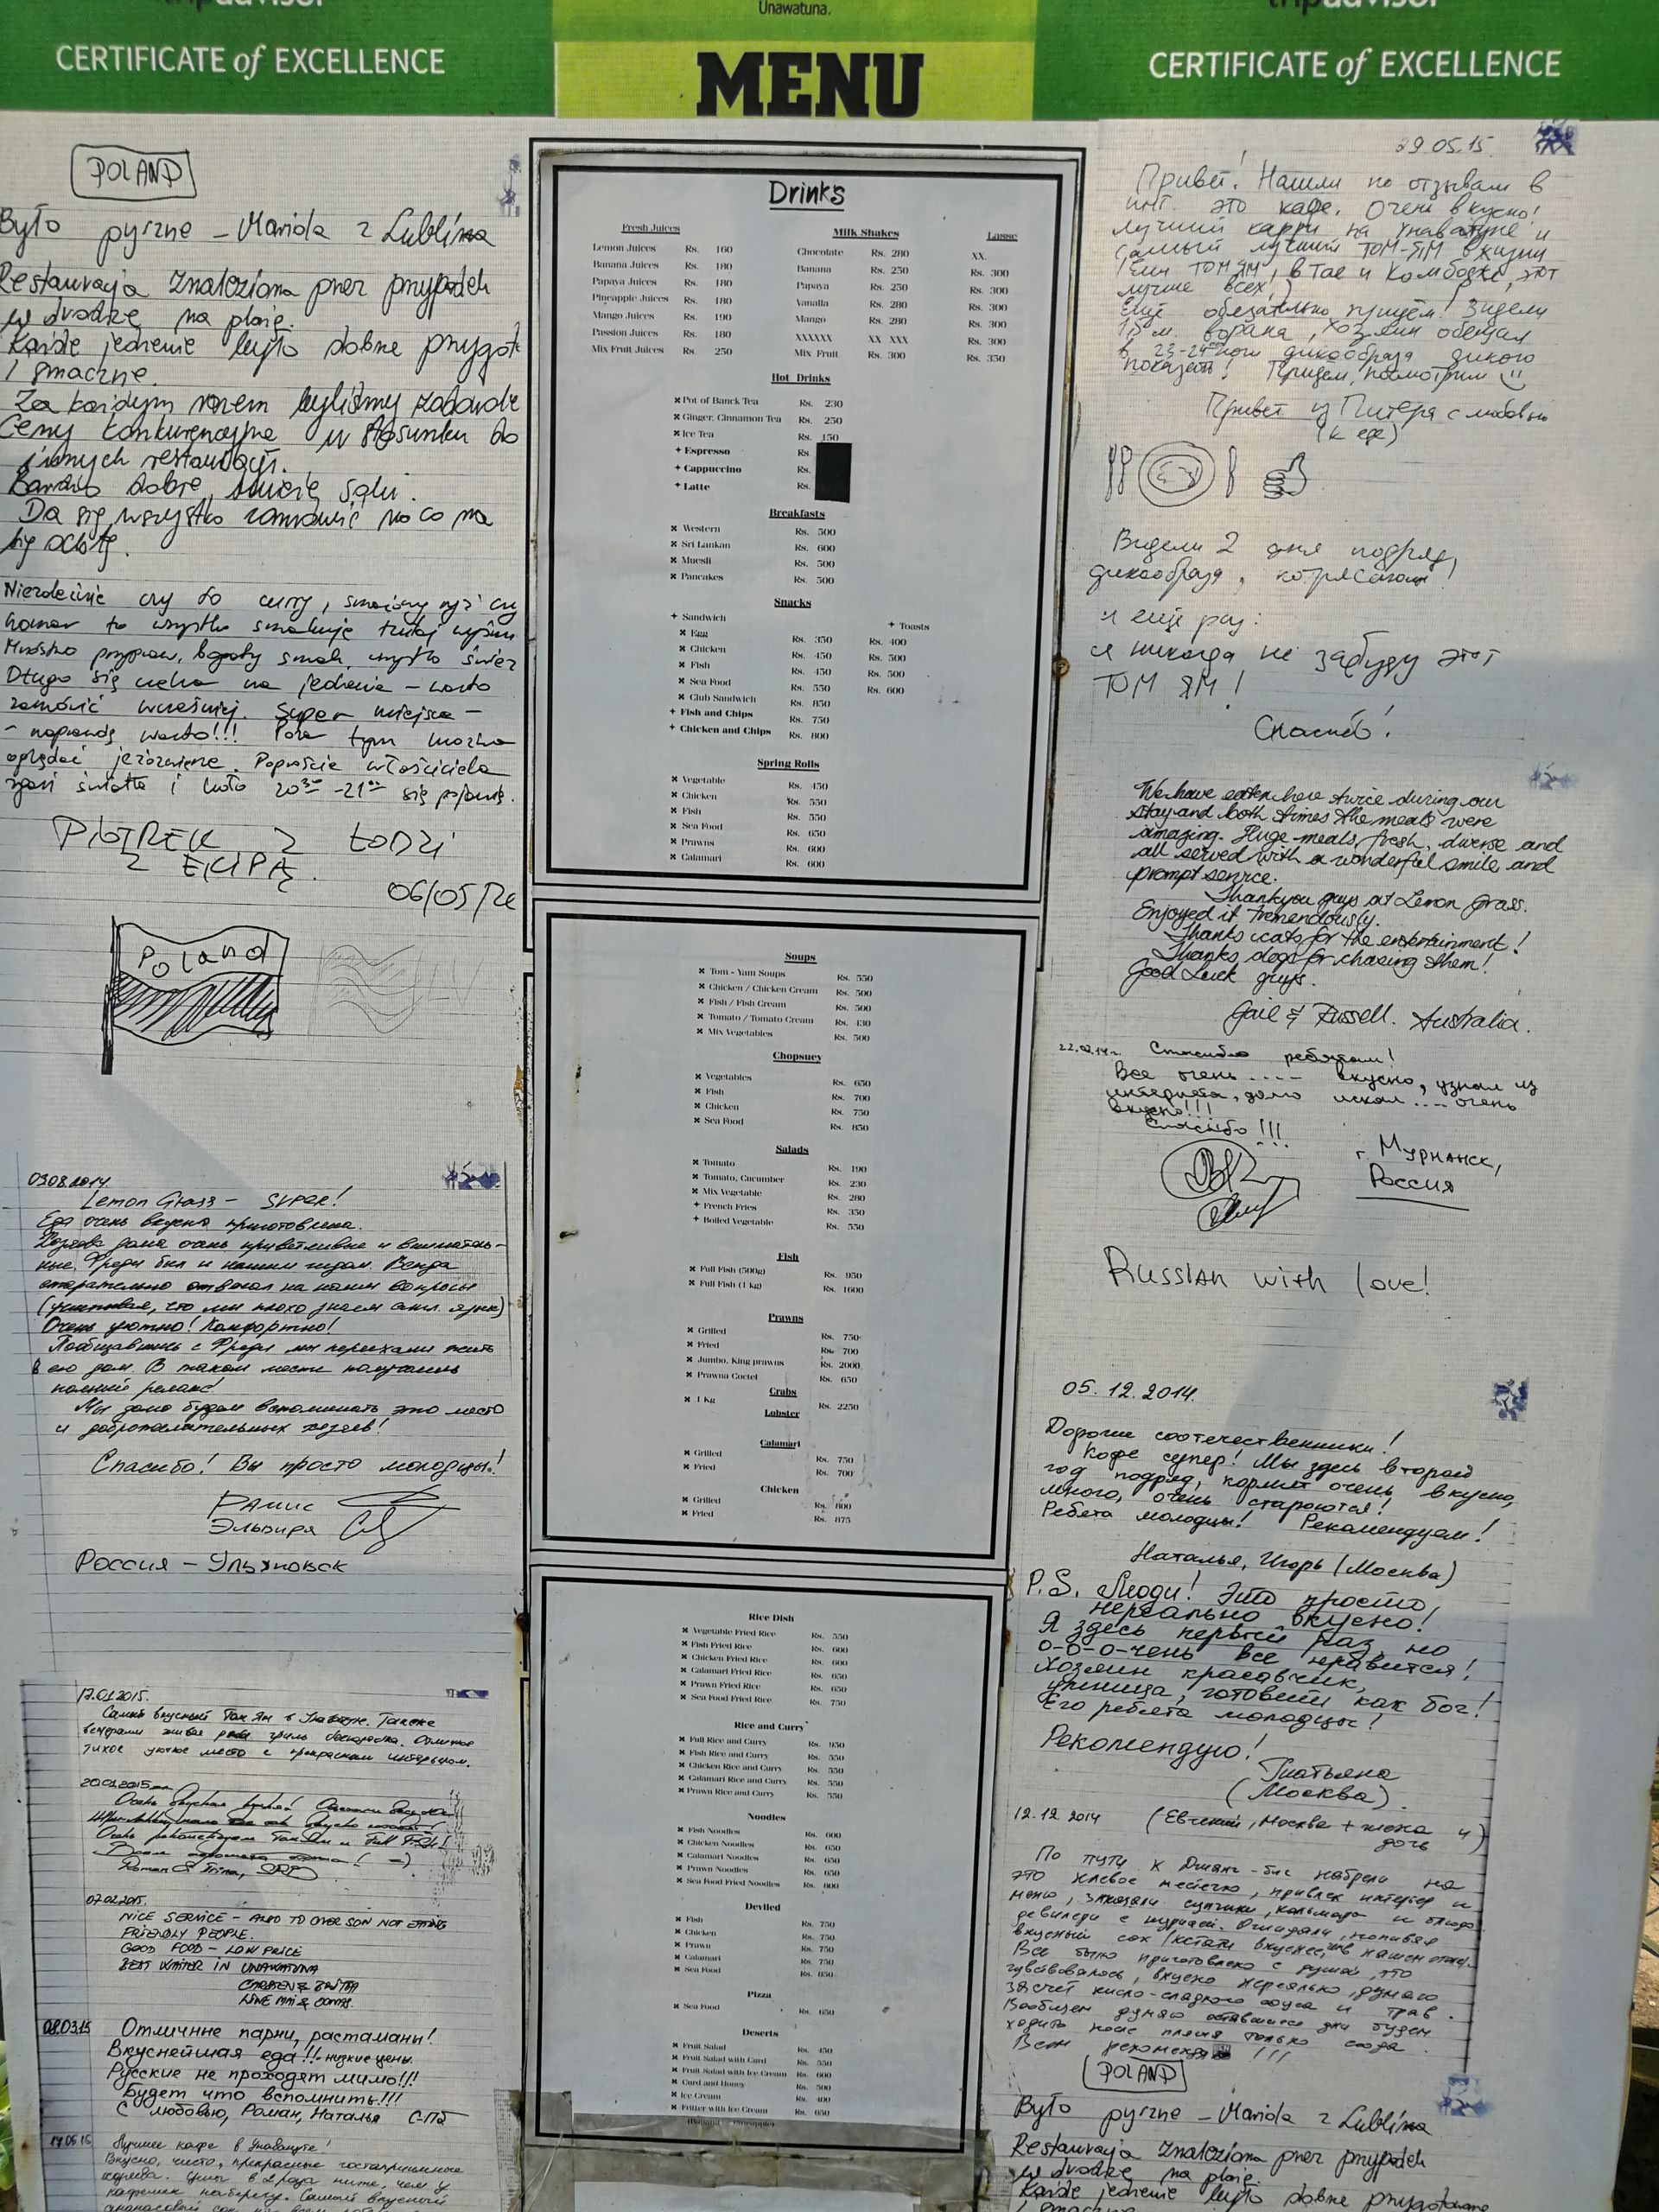 tripadvisor
CERTIFICATE of EXCELLENCE
Unawatuna.
MENU
tripadvisor
CERTIFICATE of EXCELLENCE
POLAND
Było pyszne – Mariola z Lublina
Restauracja znaleziona przez przypadek
w drodze na plażę.
Każde jedzenie było dobrze przygot
i smaczne.
Za każdym razem byliśmy
Ceny konkurencyjne w stosunku do
innych restauracji.
Bardzo dobre, soki.
Da się wszystko zamówić na co ma
się ochotę.
Niezależnie czy to curry, smażony ryż czy
homar to wszystko smakuje tutaj
Mnóstwo przypraw, bogaty smak,
Długo się czeka na jedzenie – warto
zamówić wcześniej. Super miejsce –
– naprawdę warto!!! Poza tym można
oglądać jeżozwierze. Poproście właściciela
zgasi światła i koło 20 30 - 21 00 się pojawią.
PIOTREK Z ŁODZI
Z EKIPĄ.
06/05/
Poland
03.08.2014.
Lemon Grass – SUPER!
Еда очень вкусно приготовлена.
Хозяева дома очень приветливые и вниматель-
ные. Фреди был и нашим гидом. Всегда
старательно отвечал на наши вопросы
(учитывая, что мы плохо знаем англ. язык)
Очень уютно! Комфортно!
Пообщавшись с Фреди мы переехали жить
в его дом. В таком месте получаешь
полный релакс!
Мы долго будем вспоминать это место
и доброжелательных хозяев!
Спасибо! Вы просто молодцы!
Рамис
Эльвира
Россия – Ульяновск
17.01.2015.
Самый вкусный Том Ям в Унаватуне. Также
Отличное
тихое уютное место с прекрасным интерьером.
20.01.2015
Очень вкусная кухня!
Очень рекомендуем Том Ям и Full Fish!
07.02.2015.
NICE SERVICE – ALSO TO OVER SON NOT EATING
FRIENDLY PEOPLE.
GOOD FOOD – LOW PRICE
BEST WAITER IN UNAWATUNA
08.03.15 Отличные парни, растаманы!
Вкуснейшая еда!!! – низкие цены.
Русские не проходят мимо!!!
Будет что вспомнить!!!
С любовью, Роман, Наталья С-Пб
Лучшее кафе в Унаватуне!
Вкусно, чисто, прекрасные гостеприимные
хозяева. Цены в 2 раза ниже, чем у
Самый вкусный
Drinks
Fresh Juices
Lemon Juices Rs. 160
Banana Juices Rs. 180
Papaya Juices Rs. 180
Pineapple Juices Rs. 180
Mango Juices Rs. 190
Passion Juices Rs. 180
Mix Fruit Juices Rs. 250
Milk Shakes
Chocolate Rs. 280
Banana Rs. 250
Papaya Rs. 250
Vanalla Rs. 280
Mango Rs. 280
XXXXXX XX XXX
Mix Fruit Rs. 300
Lasse
XX.
Rs. 300
Rs. 300
Rs. 300
Rs. 300
Rs. 300
Rs. 350
Hot Drinks
Pot of Banck Tea Rs. 230
Ginger, Cinnamon Tea Rs. 250
Ice Tea Rs. 150
Espresso Rs.
Cappuccino Rs.
Latte Rs.
Breakfasts
Western Rs. 500
Sri Lankan Rs. 600
Muesli Rs. 500
Pancakes Rs. 500
Snacks
Sandwich Toasts
Egg Rs. 350 Rs. 400
Chicken Rs. 450 Rs. 500
Fish Rs. 450 Rs. 500
Sea Food Rs. 550 Rs. 600
Club Sandwich Rs. 850
Fish and Chips Rs. 750
Chicken and Chips Rs. 800
Spring Rolls
Vegetable Rs. 450
Chicken Rs. 550
Fish Rs. 550
Sea Food Rs. 650
Prawns Rs. 600
Calamari Rs. 600
Soups
Tom - Yam Soups Rs. 550
Chicken / Chicken Cream Rs. 500
Fish / Fish Cream Rs. 500
Tomato / Tomato Cream Rs. 430
Mix Vegetables Rs. 500
Chopsuey
Vegetables Rs. 650
Fish Rs. 700
Chicken Rs. 750
Sea Food Rs. 850
Salads
Tomato Rs. 190
Tomato, Cucumber Rs. 230
Mix Vegetable Rs. 280
French Fries Rs. 350
Boiled Vegetable Rs. 550
Fish
Full Fish (500g) Rs. 950
Full Fish (1 kg) Rs. 1600
Prawns
Grilled Rs. 750
Fried Rs. 700
Jumbo, King prawns Rs. 2000
Prawns Coctel Rs. 650
Crabs
1 Kg Rs. 2250
Lobster
Calamari
Grilled Rs. 750
Fried Rs. 700
Chicken
Grilled Rs. 800
Fried Rs. 875
Rice Dish
Vegetable Fried Rice Rs. 550
Fish Fried Rice Rs. 600
Chicken Fried Rice Rs. 600
Calamari Fried Rice Rs. 650
Prawn Fried Rice Rs. 650
Sea Food Fried Rice Rs. 750
Rice and Curry
Full Rice and Curry Rs. 950
Fish Rice and Curry Rs. 550
Chicken Rice and Curry Rs. 550
Calamari Rice and Curry Rs. 550
Prawn Rice and Curry Rs. 550
Noodles
Fish Noodles Rs. 600
Chicken Noodles Rs. 650
Calamari Noodles Rs. 650
Prawn Noodles Rs. 650
Sea Food Fried Noodles Rs. 800
Deviled
Fish Rs. 750
Chicken Rs. 750
Prawn Rs. 750
Calamari Rs. 750
Sea Food Rs. 850
Pizza
Sea Food Rs. 650
Deserts
Fruit Salad Rs. 450
Fruit Salad with Curd Rs. 550
Fruit Salad with Ice Cream Rs. 600
Curd and Honey Rs. 500
Ice Cream Rs. 400
Fritter with Ice Cream Rs. 650
29.05.15.
Привет! Нашли по отзывам в
инт. это кафе. Очень вкусно!
лучший карри на Унаватуне и
самый лучший ТОМ-ЯМ в жизни
(Ели ТОМ ЯМ, в Тае и Камбодже, этот
лучше всех)
Ещё обязательно придём! Видели
1,5 м. варана, хозяин обещал
в 23-24 ночи дикообраза дикого
показать! Придем, посмотрим
Привет из Питера с любовью
(к еде)
Видели 2 дня подряд,
дикообраза, потрясающи!
и ещё раз:
я никогда не забуду этот
ТОМ ЯМ!
Спасибо!
We have eaten here twice during our
stay and both times the meals were
amazing. Huge meals, fresh, diverse and
all served with a wonderful smile and
prompt service.
Thankyou guys at Lemon Grass.
Enjoyed it tremendously.
Thanks cats for the entertainment!
Thanks dogs for chasing them!
Good Luck guys.
Gail & Russell. Australia.
Спасибо ребятам!
Все очень .... вкусно, узнал из
интернета, долго искал .... очень
вкусно!!!
Спасибо!!!
г. Мурманск,
Россия
Russian with love!
05.12.2014.
Дорогие соотечественники!
Кафе супер! Мы здесь второй
год подряд, кормят очень вкусно,
много, очень стараются!
Ребята молодцы! Рекомендуем!
Наталья, Игорь (Москва)
P.S. Люди! Это просто
нереально вкусно!
Я здесь первый раз, но
о-о-о-чень все нравится!
Хозяин красавчик,
умница, готовит как бог!
Его ребята молодцы!
Рекомендую!
Татьяна
(Москва).
12.12 2014 (Евгений, Москва + жена и
дочь)
По пути к Джангл-бич набрели на
это клевое местечко, привлек интерьер и
меню, заказали супчики, кальмара и блюдо
девиледи с курицей. Ожидали, попивая
вкусный сок (кстати вкуснее, чем в нашем отеле).
Все было приготовлено с душой, это
чувствовалось, вкусно нереально, думаю
засчёт кисло-сладкого соуса и трав.
Вообщем думаю оставшиеся дни будем
ходить после пляжа только сюда.
Всем рекомендую !!!
POLAND
Było pyszne – Mariola z Lublina
Restauracja znaleziona przez przypadek
w drodze na plażę.
Każde jedzenie było dobrze przygotowane
i smaczne